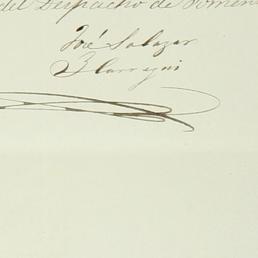 del Despacho de Fomen
José Salazar
Ilarregui